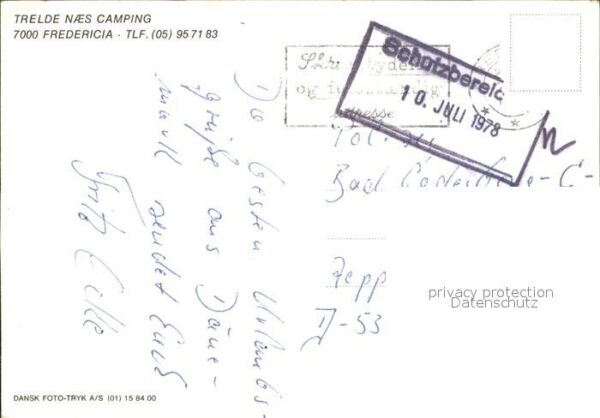 TRELDE NÆS CAMPING
7000 FREDERICIA - TLF. (05) 95 71 83
og fuldstændig
adresse
Schutzbereic
10. JULI 1978
Die besten Urlaubs-
grüße aus Däne-
mark sendet Euch
Fritz
Bad
D-53
privacy protection
Datenschutz
DANSK FOTO-TRYK A/S (01) 15 84 00